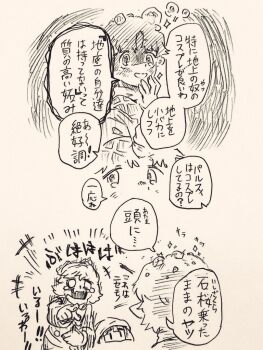 特に地上の奴の
コスプレが良いわ
地上を
小バカに
しつつ
地底の自分達
は持てないって
質の高い妬み
あ〜!
絶好調!
パルスィ
はコスプレ
してるの?
一応ね
頭に…
石桜乗った
ままのヤツ
ぶはははは
いるー!!
いるわー!